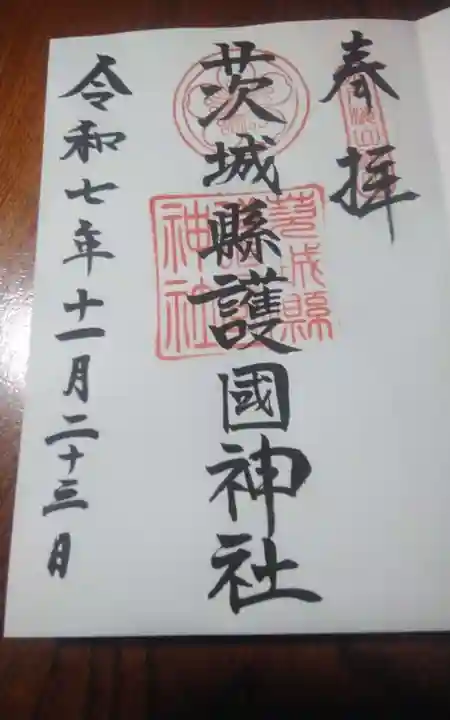 奉拝
茨城縣護國神社
茨城縣
護國
神社
令和七年十一月二十三日